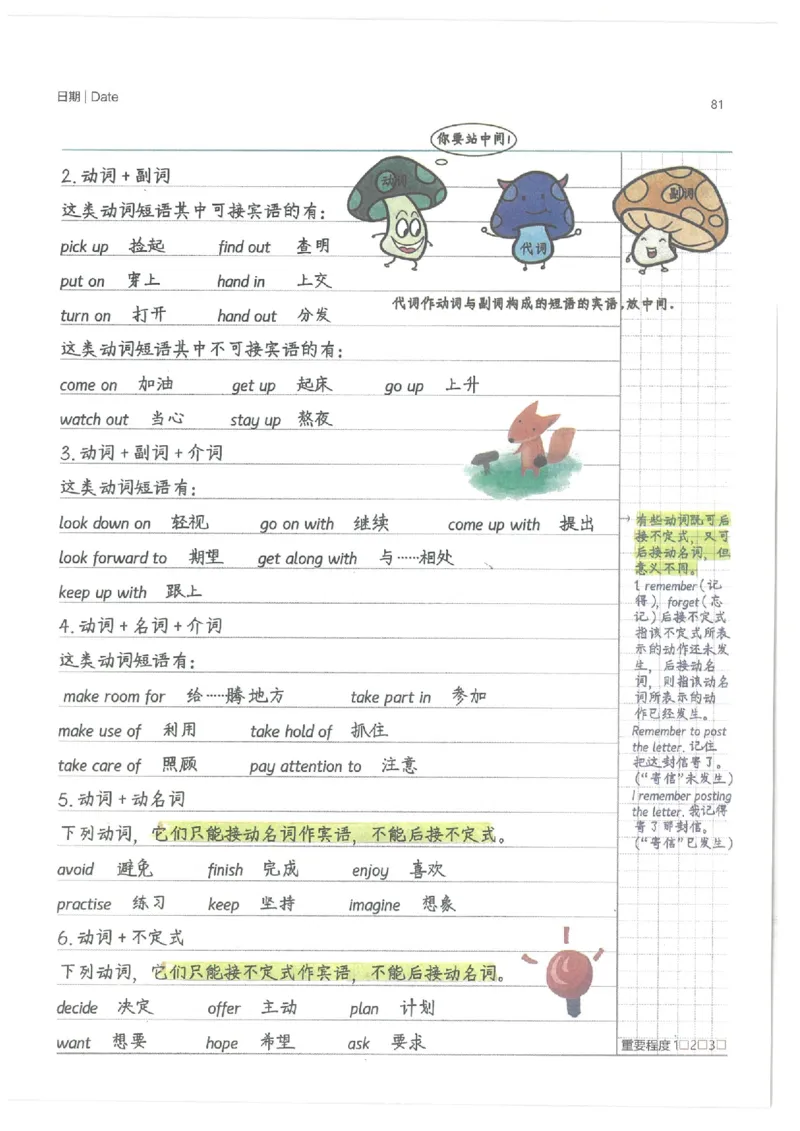 日期 | Date
81
你要站中间!
动词
代词
副词
2. 动词 + 副词
这类动词短语其中可接宾语的有:
pick up 捡起 find out 查明
put on 穿上 hand in 上交
代词作动词与副词构成的短语的宾语,放中间.
turn on 打开 hand out 分发
这类动词短语其中不可接宾语的有:
come on 加油 get up 起床 go up 上升
watch out 当心 stay up 熬夜
3. 动词 + 副词 + 介词
这类动词短语有:
look down on 轻视 go on with 继续 come up with 提出
look forward to 期望 get along with 与……相处
keep up with 跟上
4. 动词 + 名词 + 介词
这类动词短语有:
make room for 给……腾地方 take part in 参加
make use of 利用 take hold of 抓住
take care of 照顾 pay attention to 注意
5. 动词 + 动名词
下列动词, 它们只能接动名词作宾语, 不能后接不定式。
avoid 避免 finish 完成 enjoy 喜欢
practise 练习 keep 坚持 imagine 想象
6. 动词 + 不定式
下列动词, 它们只能接不定式作宾语, 不能后接动名词。
decide 决定 offer 主动 plan 计划
want 想要 hope 希望 ask 要求
→ 有些动词既可后
接不定式, 又可
后接动名词, 但
意义不同。
1. remember (记
得), forget (忘
记) 后接不定式
指该不定式所表
示的动作还未发
生, 后接动名
词, 则指该动名
词所表示的动
作已经发生。
Remember to post
the letter. 记住
把这封信寄了。
(“寄信”未发生)
I remember posting
the letter. 我记得
寄了那封信。
(“寄信”已发生)
重要程度 1□2□3□